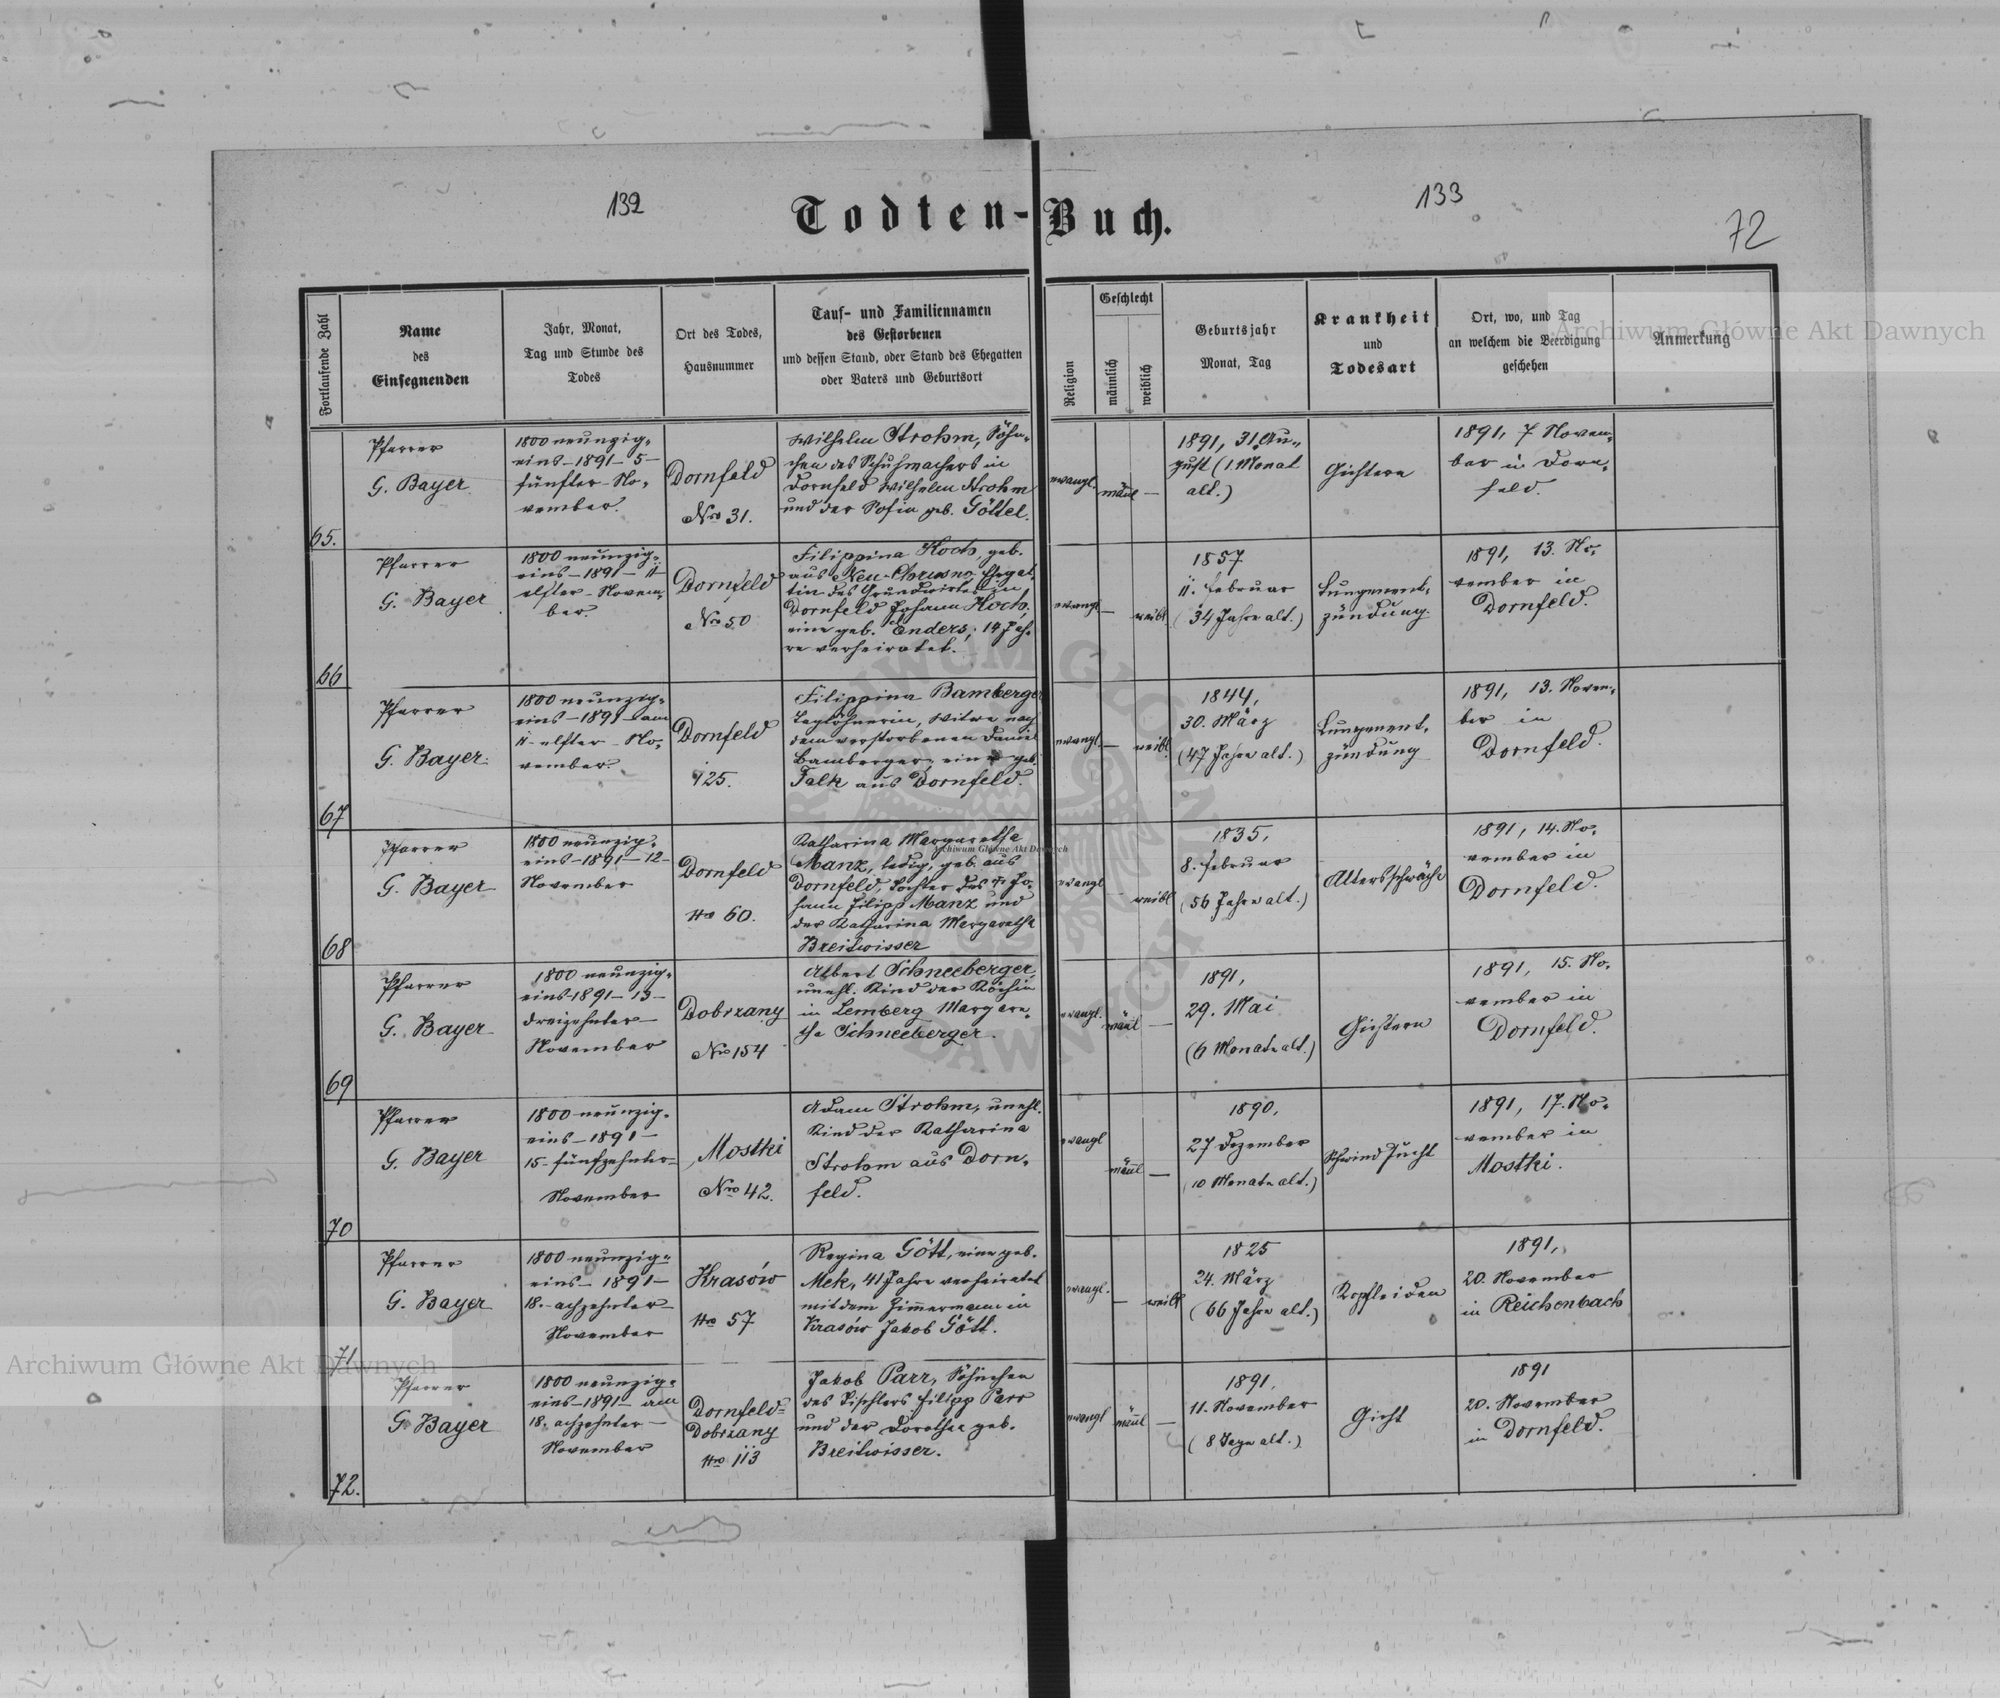 132
133
72
Todten-Buch.
Fortlaufende Zahl
Name
des
Einsegnenden
Jahr, Monat,
Tag und Stunde des
Todes
Ort des Todes,
Hausnummer
Tauf- und Familiennamen
des Gestorbenen
und dessen Stand, oder Stand des Ehegatten
oder Vaters und Geburtsort
Religion
Geschlecht
männlich
weiblich
Geburtsjahr
Monat, Tag
Krankheit
und
Todesart
Ort, wo, und Tag
an welchem die Beerdigung
geschehen
Anmerkung
Archiwum Główne Akt Dawnych
65.
Pfarrer
G. Bayer
1800 neunzig-
eins-1891-5-
fünfter No-
vember.
Dornfeld
Nro 31.
Wilhelm Strohm, Söhn-
chen des Schuhmachers in
Dornfeld Wilhelm Strohm
und der Sofia geb. Göttel.
evangl.
männl
—
1891, 31. Au-
gust (1. Monat
alt.)
Gichtern
1891, 7 Novem-
ber in Dorn-
feld.
66
Pfarrer
G. Bayer
1800 neunzig-
eins-1891-11
elfter-Novem-
ber.
Dornfeld
Nro 50
Filippina Koch, geb.
aus Neu-Chrusno, Ehegat-
tin des Grundwirtes in
Dornfeld Johann Koch,
eine geb. Enders; 14 Jah-
re verheiratet.
evangl
—
weibl
1857
11. Februar
(34 Jahre alt.)
Lungenent-
zündung.
1891, 13. No-
vember in
Dornfeld.
67
Pfarrer
G. Bayer.
1800 neunzig-
eins-1891-am
11-elfter-No-
vember.
Dornfeld
125.
Filippina Bamberger
Taglöhnerin, Witwe nach
dem verstorbenen Daniel
Bamberger, eine geb.
Falk aus Dornfeld.
evangl.
—
weibl.
1844,
30. März
(47 Jahre alt.)
Lungenent-
zündung
1891, 13. Novem-
ber in
Dornfeld.
68
Pfarrer
G. Bayer
1800 neunzig-
eins-1891-12-
November
Dornfeld
Nro 60.
Katharina Margaretha
Manz, ledig, geb. aus
Dornfeld, Tochter des Jo-
hann Filipp Manz und
der Katharina Margaretha
Breitwisser
evangl
weibl
1835,
8. Februar
(56 Jahre alt.)
Altersschwäche
1891, 14. No-
vember in
Dornfeld.
Archiwum Główne Akt Dawnych
69
Pfarrer
G. Bayer
1800 neunzig-
eins-1891-13-
dreizehnter-
November
Dobrzany
Nro 154
Albert Schneeberger,
unehl. Kind der Köchin
in Lemberg Margare-
tha Schneeberger.
evangl.
männl
—
1891,
29. Mai
(6 Monate alt.)
Gichtern
1891, 15. No-
vember in
Dornfeld.
70
Pfarrer
G. Bayer
1800 neunzig-
eins-1891-
15-fünfzehnter-
November
Mostki
Nro 42.
Adam Strohm, unehl.
Kind der Katharina
Strohm aus Dorn-
feld.
evangl
männl
—
1890,
27 Dezember
(10 Monate alt.)
Schwindsucht
1891, 17. No-
vember in
Mostki.
71
Pfarrer
G. Bayer
1800 neunzig-
eins-1891-
18.-achzehnter-
November
Krasów
Nro 57
Regina Gött, eine geb.
Mek, 41 Jahre verheiratet
mit dem Zimmermann in
Krasów Jakob Gött.
evangl.
—
weibl
1825
24. März
(66 Jahre alt.)
Kopfleiden
1891,
20. November
in Reichenbach
Archiwum Główne Akt Dawnych
72.
Pfarrer
G. Bayer
1800 neunzig-
eins-1891-am
18.-achzehnter-
November
Dornfeld-
Dobrzany
Nro 113
Jakob Parr, Söhnchen
des Tischlers Filipp Parr
und der Dorothea geb.
Breitwisser.
evangl
männl
—
1891,
11. November
(8 Tage alt.)
Gicht
1891
20. November
in Dornfeld.